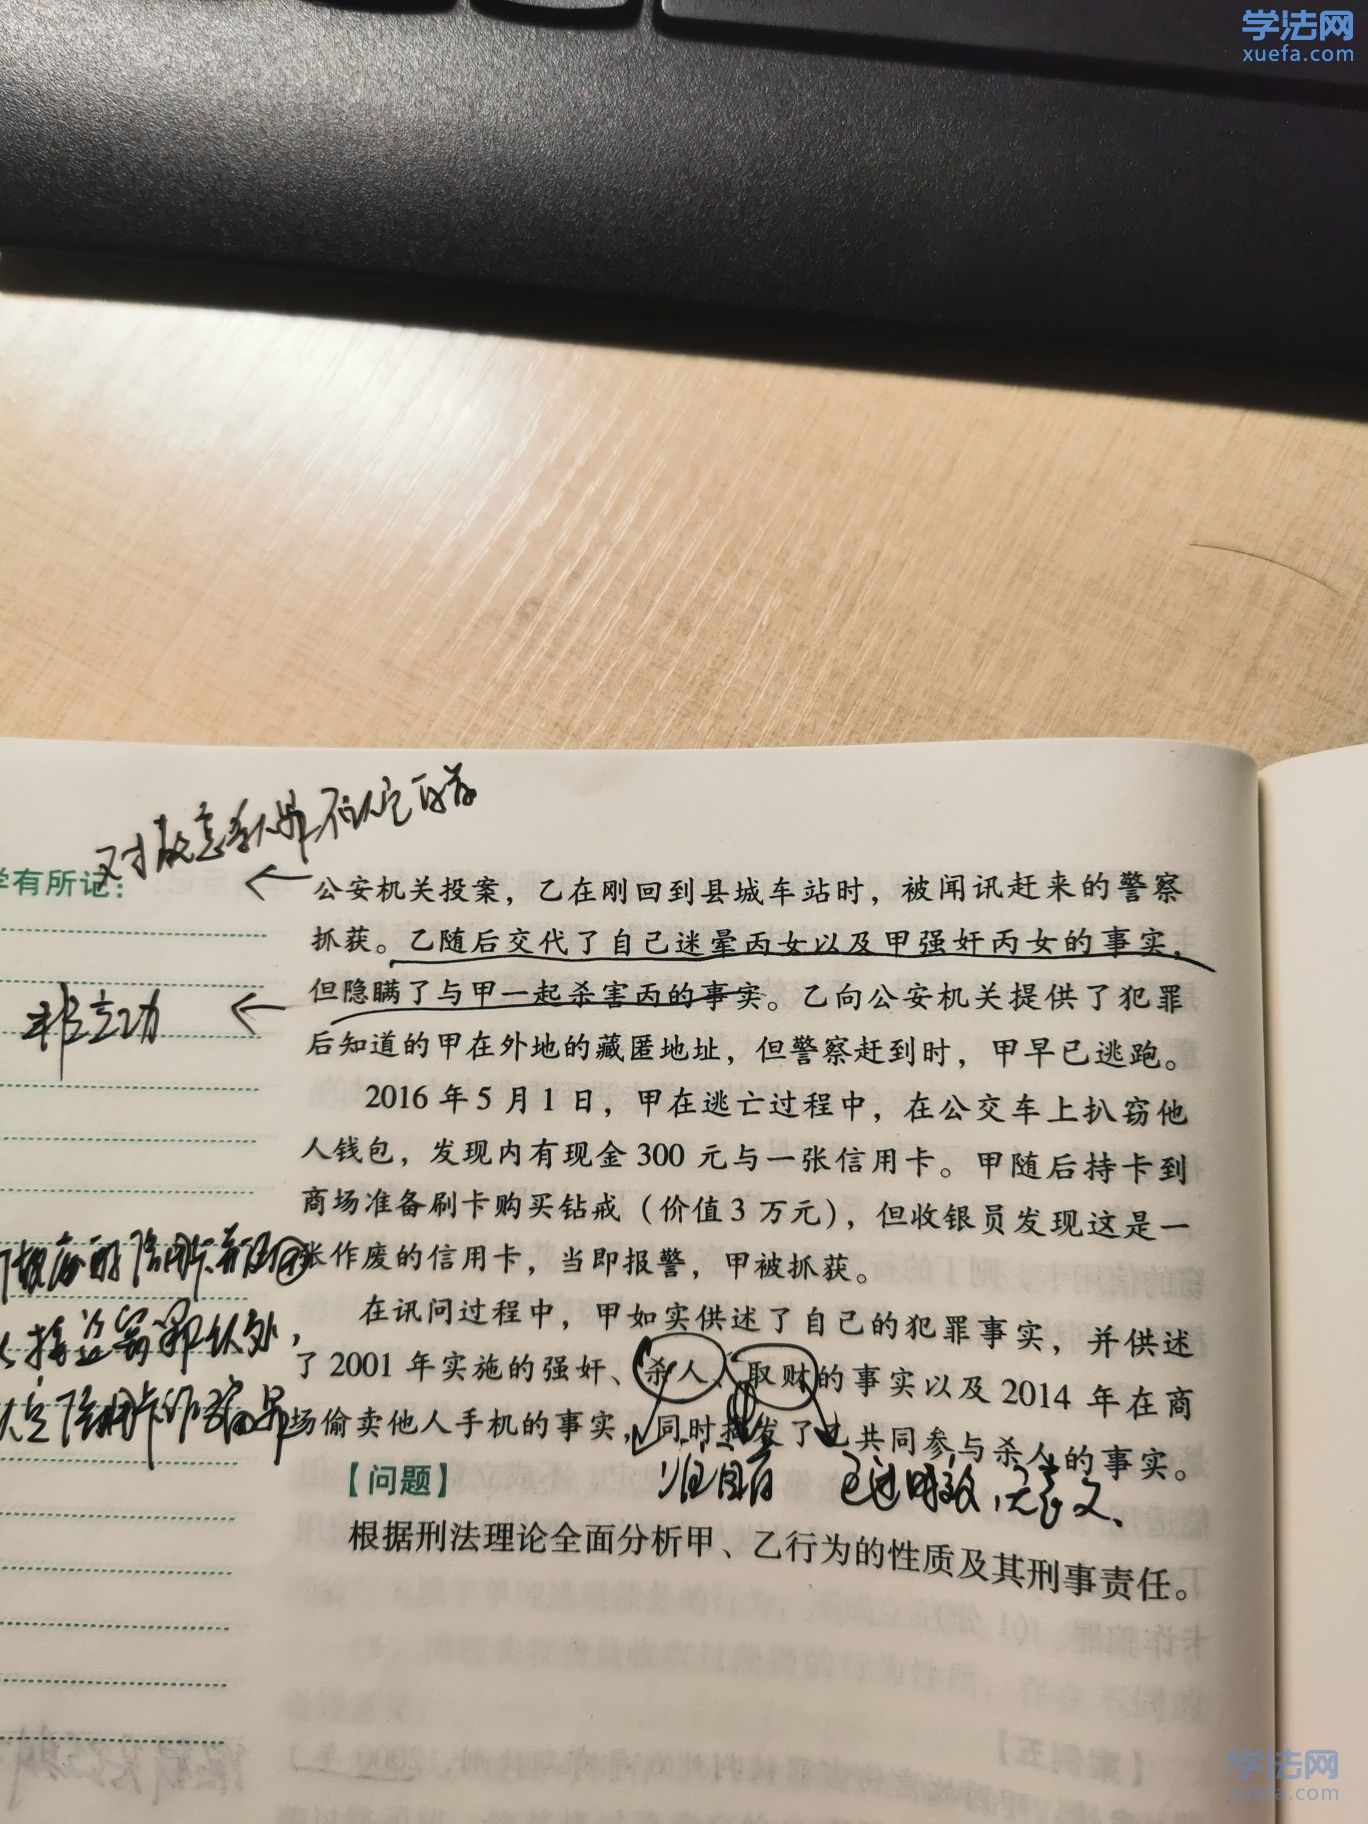 学法网
xuefa.com
对故意杀人罪不认定自首
学有所记：
公安机关投案，乙在刚回到县城车站时，被闻讯赶来的警察
抓获。乙随后交代了自己迷晕丙女以及甲强奸丙女的事实，
但隐瞒了与甲一起杀害丙的事实。乙向公安机关提供了犯罪
非立功
后知道的甲在外地的藏匿地址，但警察赶到时，甲早已逃跑。
2016年5月1日，甲在逃亡过程中，在公交车上扒窃他
人钱包，发现内有现金300元与一张信用卡。甲随后持卡到
商场准备刷卡购买钻戒（价值3万元），但收银员发现这是一
张作废的信用卡，当即报警，甲被抓获。
在讯问过程中，甲如实供述了自己的犯罪事实，并供述
了2001年实施的强奸、杀人、取财的事实以及2014年在商
场偷卖他人手机的事实，同时揭发了乙共同参与杀人的事实。
准自首 已过时效，无意义、
【问题】
根据刑法理论全面分析甲、乙行为的性质及其刑事责任。
学法网
xuefa.com